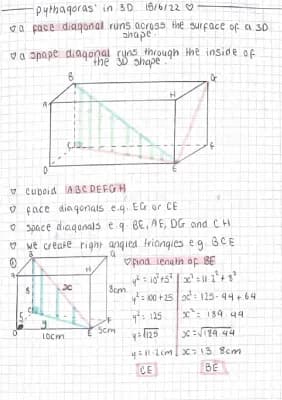 Pythagoras' in 3D 15/6/22 ♡
♡ a face diagonal runs across the surface of a 3D
shape.
♡ a space diagonal runs through the inside of
the 3D shape.
B
G
A
H
C
F
D
E
♡ cuboid ABCDEFGH
♡ face diagonals e.g. EG or CE
♡ space diagonals e.g. BE, AF, DG and CH
♡ we create right angled triangles e.g. BCE
B
G
A
H
8
x
8cm
C
F
y
D
E
5cm
10cm
♡ find length of BE
y² = 10² + 5²
y² = 100 + 25
y² = 125
y = √125
y = 11.2cm
CE
x² = 11.2² + 8²
x² = 125.44 + 64
x² = 189.44
x = √189.44
x = 13.8cm
BE